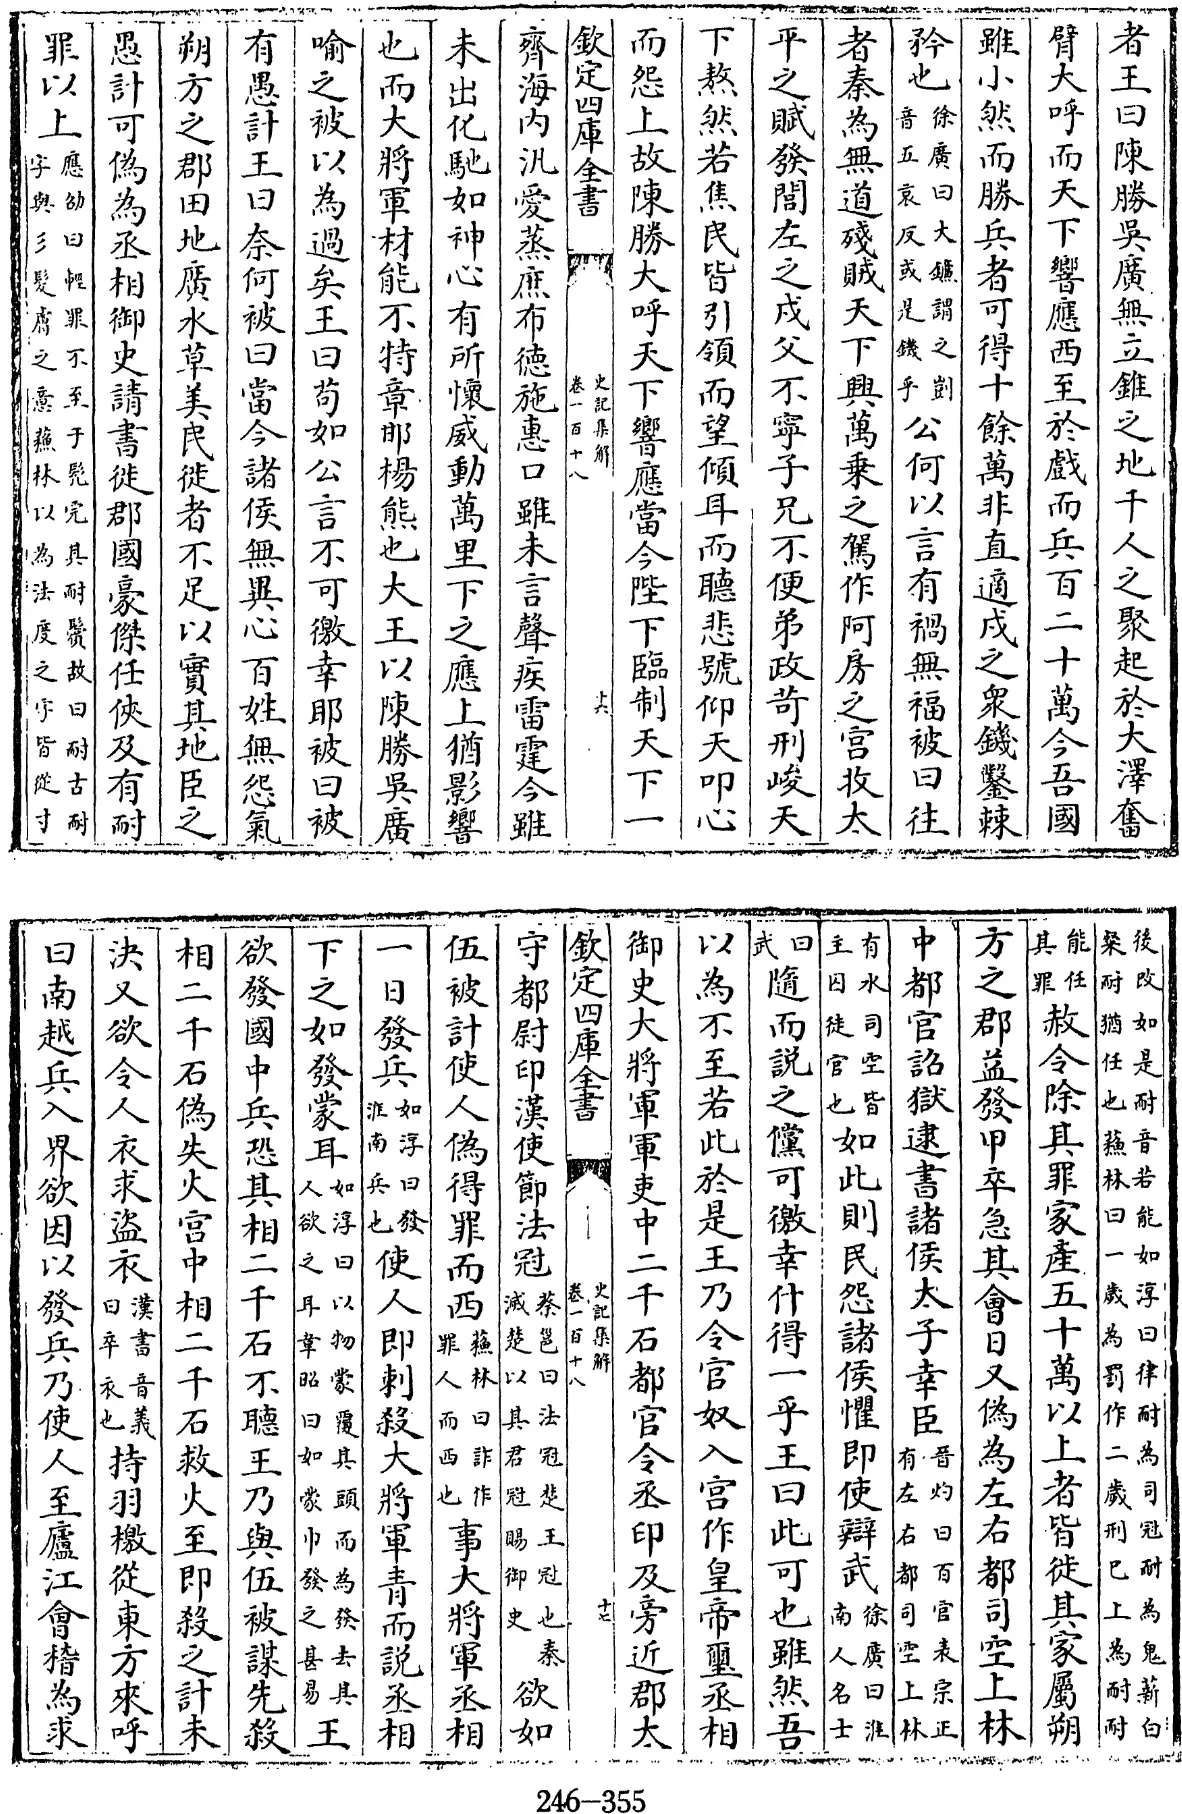 者王曰陳勝吳廣無立錐之地千人之聚起於大澤奮
臂大呼而天下響應西至於戲而兵百二十萬今吾國
雖小然而勝兵者可得十餘萬非直適戍之衆鐖鑿棘
矜也徐廣曰大鐮謂之剴音五哀反或是鐖乎公何以言有禍無福被曰往
者秦為無道殘賊天下興萬乗之駕作阿房之宫收太
平之賦發閭左之戍父不寧子兄不便弟政苛刑峻天
下熬然若焦民皆引領而望傾耳而聽悲號仰天叩心
而怨上故陳勝大呼天下響應當今陛下臨制天下一
欽定四庫全書
史記集解
卷一百十八
十六
齊海内汎愛蒸庶布德施惠口雖未言聲疾雷霆今雖
未出化馳如神心有所懷威動萬里下之應上猶影響
也而大將軍材能不特章邯楊熊也大王以陳勝吳廣
喻之被以為過矣王曰苟如公言不可徼幸耶被曰被
有愚計王曰奈何被曰當今諸侯無異心百姓無怨氣
朔方之郡田地廣水草美民徙者不足以實其地臣之
愚計可偽為丞相御史請書徙郡國豪傑任俠及有耐
罪以上應劭曰輕罪不至于髡完其耐鬢故曰耐古耐字與彡髮膚之意蘓林以為法度之字皆從寸
後改如是耐音若能如淳曰律耐為司冦耐為鬼薪白粲耐猶任也蘓林曰一歲為罰作二歲刑已上為耐耐
能任其罪赦令除其罪家產五十萬以上者皆徙其家屬朔
方之郡益發甲卒急其會日又偽為左右都司空上林
中都官詔獄逮書諸侯太子幸臣晉灼曰百官表宗正有左右都司空上林
有水司空皆主囚徒官也如此則民怨諸侯懼即使辯武徐廣曰淮南人名士
曰武隨而説之儻可徼幸什得一乎王曰此可也雖然吾
以為不至若此於是王乃令官奴入宫作皇帝璽丞相
御史大將軍軍吏中二千石都官令丞印及旁近郡太
欽定四庫全書
史記集解
卷一百十八
十七
守都尉印漢使節法冠蔡邕曰法冠楚王冠也秦滅楚以其君冠賜御史欲如
伍被計使人偽得罪而西蘓林曰詐作罪人而西也事大將軍丞相
一日發兵如淳曰發淮南兵也使人即刺殺大將軍青而説丞相
下之如發蒙耳如淳曰以物蒙覆其頭而為發去其人欲之耳韋昭曰如蒙巾發之甚易王
欲發國中兵恐其相二千石不聽王乃與伍被謀先殺
相二千石偽失火宫中相二千石救火至即殺之計未
決又欲令人衣求盜衣漢書音義曰卒衣也持羽檄從東方來呼
曰南越兵入界欲因以發兵乃使人至廬江會稽為求
246-355